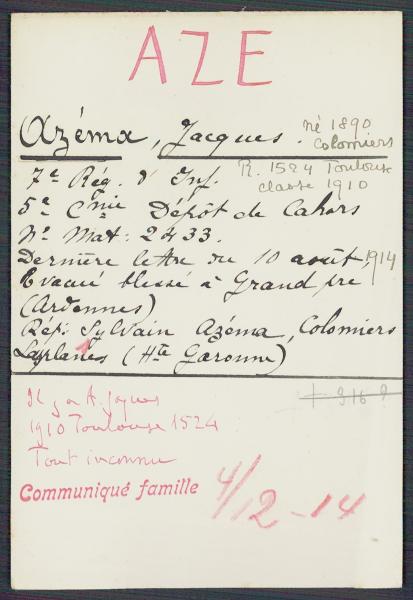 AZE
Azéma, Jacques. né 1890
Colomiers
R. 1524 Toulouse
classe 1910
7e Rég. d'Inf.
5e Cnie Dépôt de Cahors
No Mat: 2433.
Dernière lettre du 10 août, 1914
Evacué blessé à Grand pre
(Ardennes)
Rép: Sylvain Azéma, Colomiers
Laplanes (Hte Garonne)
+ 316
Il y a A. Jaques
1910 Toulouse 1524
Tout inconnu
Communiqué famille 4/12-14